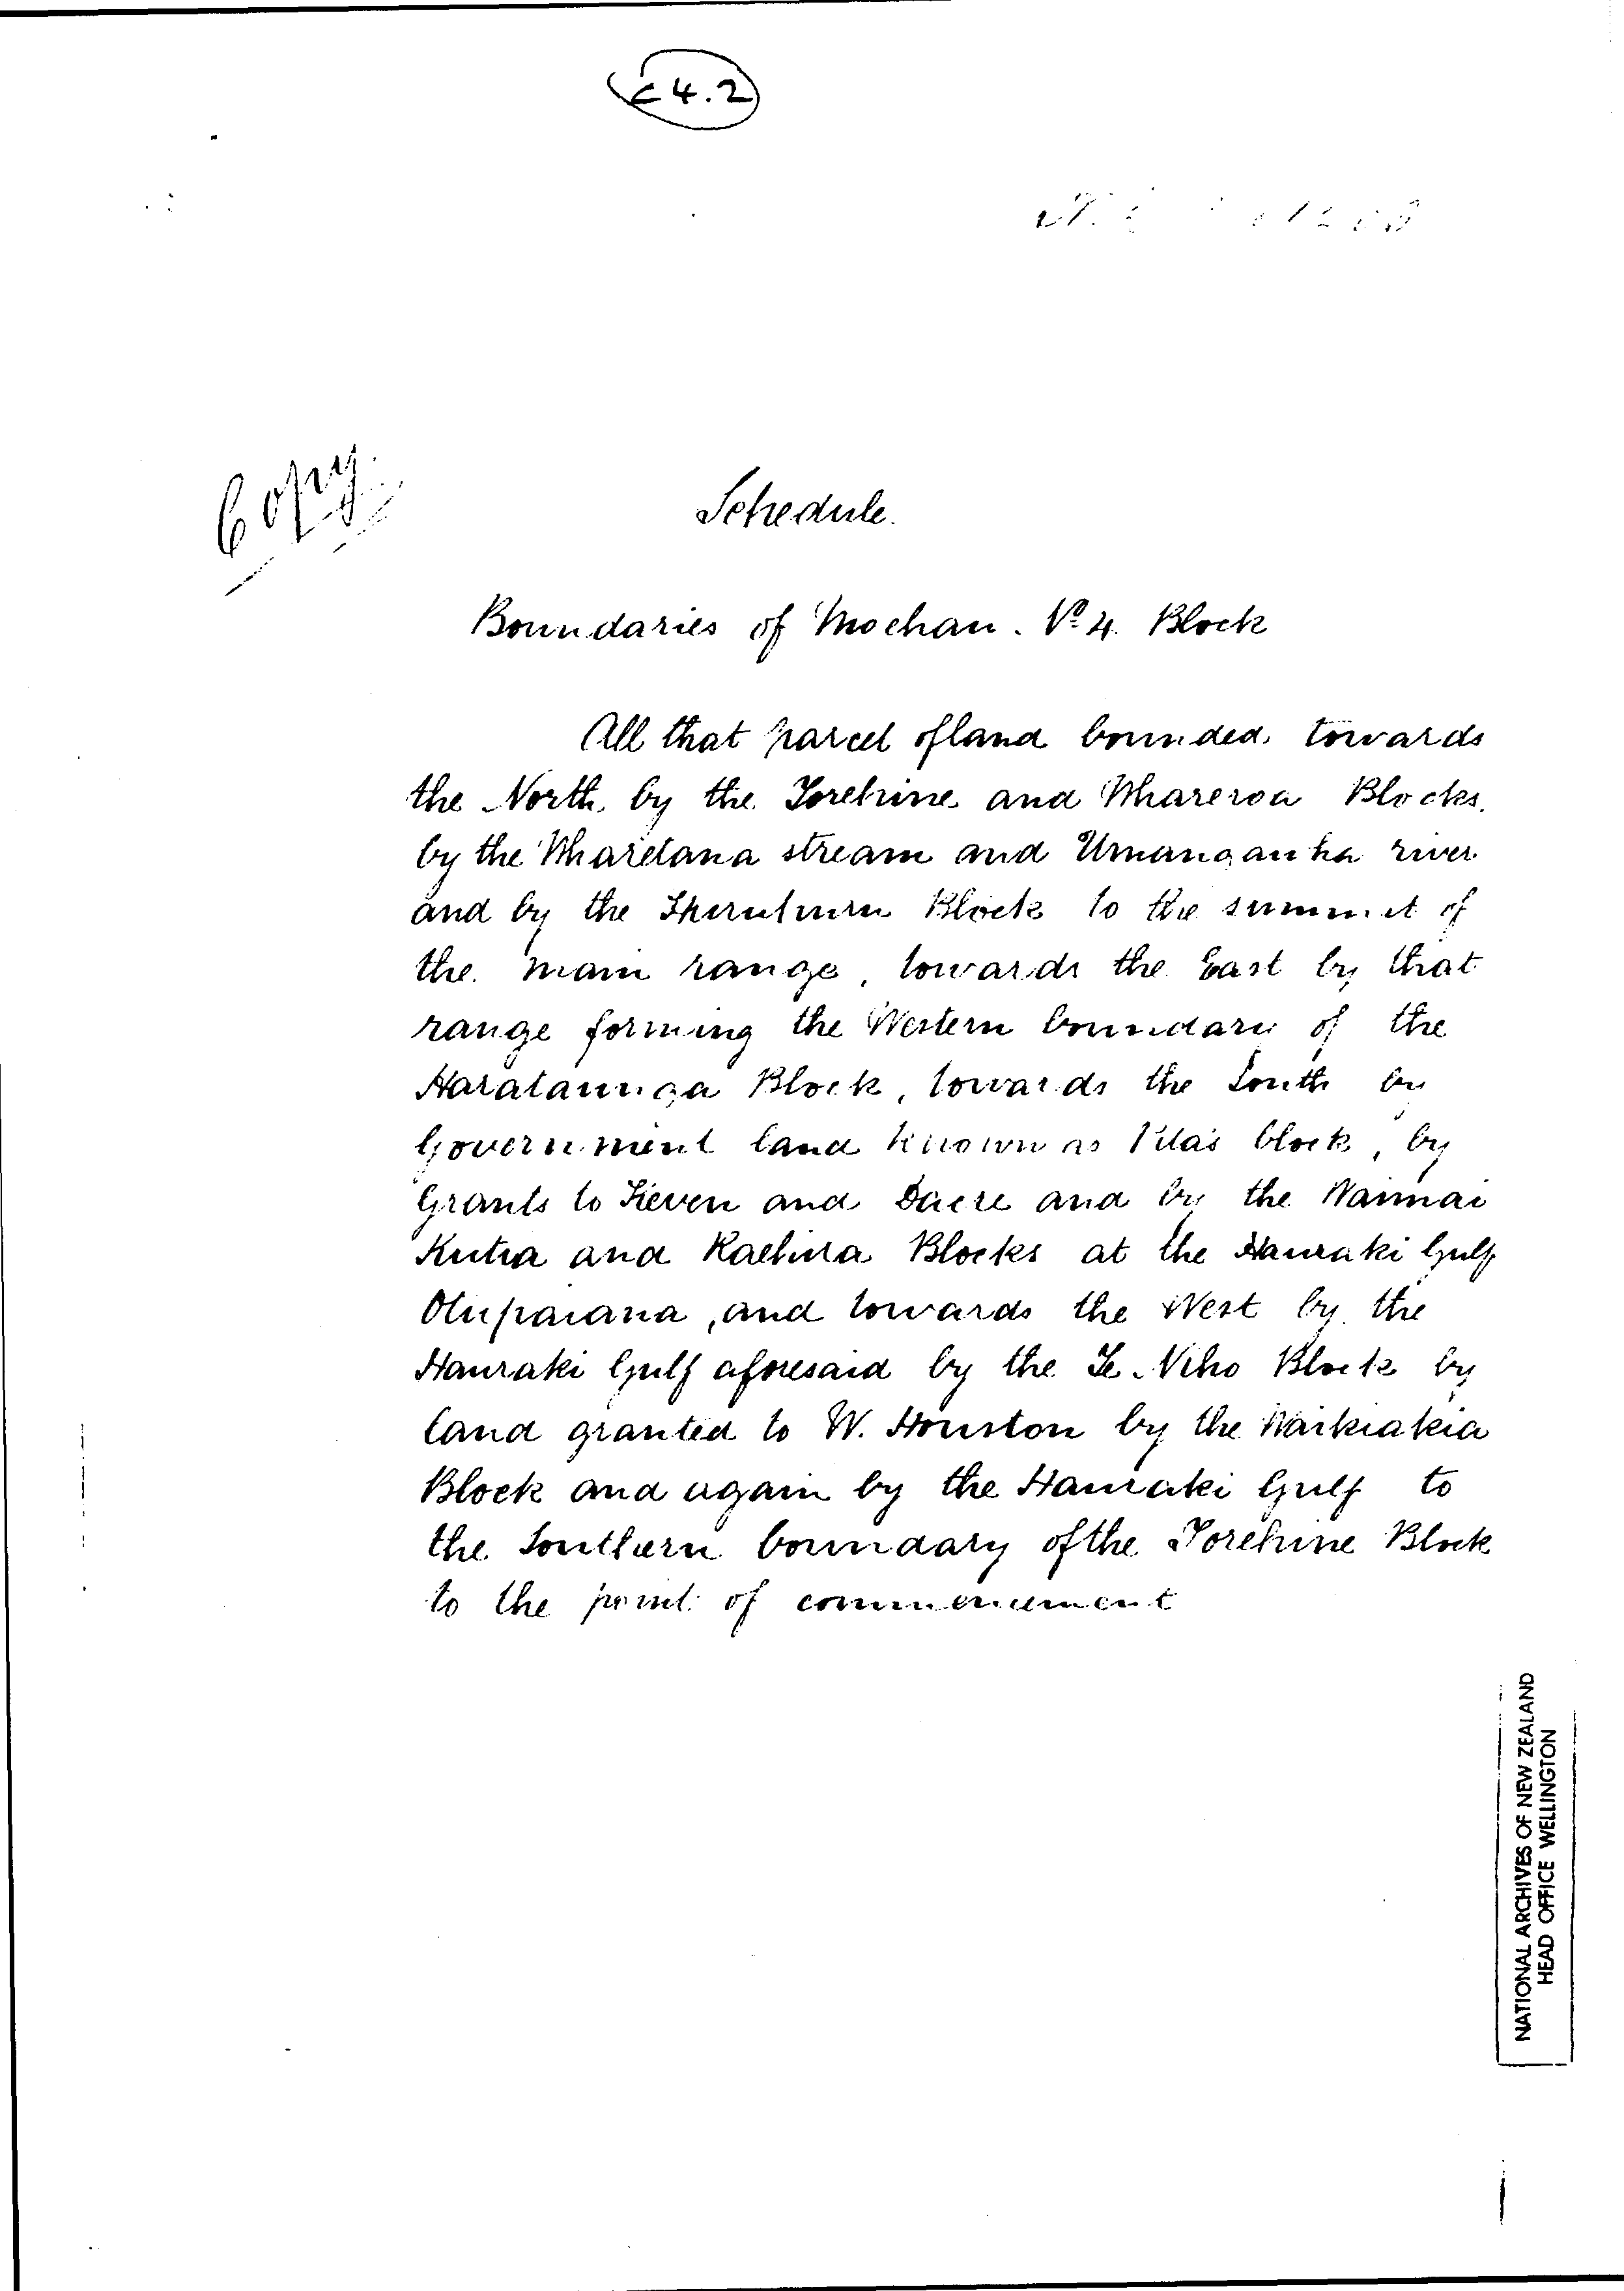 E4.2
Copy
Schedule.
Boundaries of Moehau. No 4. Block
All that parcel of land bounded towards
the North by the Torehine and Whareroa Blocks.
by the Wharetana stream and Umangawha river
and by the Block to the summit of
the main range, towards the East by that
range forming the Western boundary of the
Harataunga Block, towards the South by
Government land known as Pita's block, by
Grants to Keven and Dacre and by the Waimai
Kutia and Block at the Hauraki Gulf
Otupaiana, and towards the West by the
Hauraki Gulf aforesaid by the Te Niho Block by
land granted to W. Houston by the Waikiakia
Block and again by the Hauraki Gulf to
the Southern boundary of the Torehine Block
to the point of commencement
NATIONAL ARCHIVES OF NEW ZEALAND
HEAD OFFICE WELLINGTON